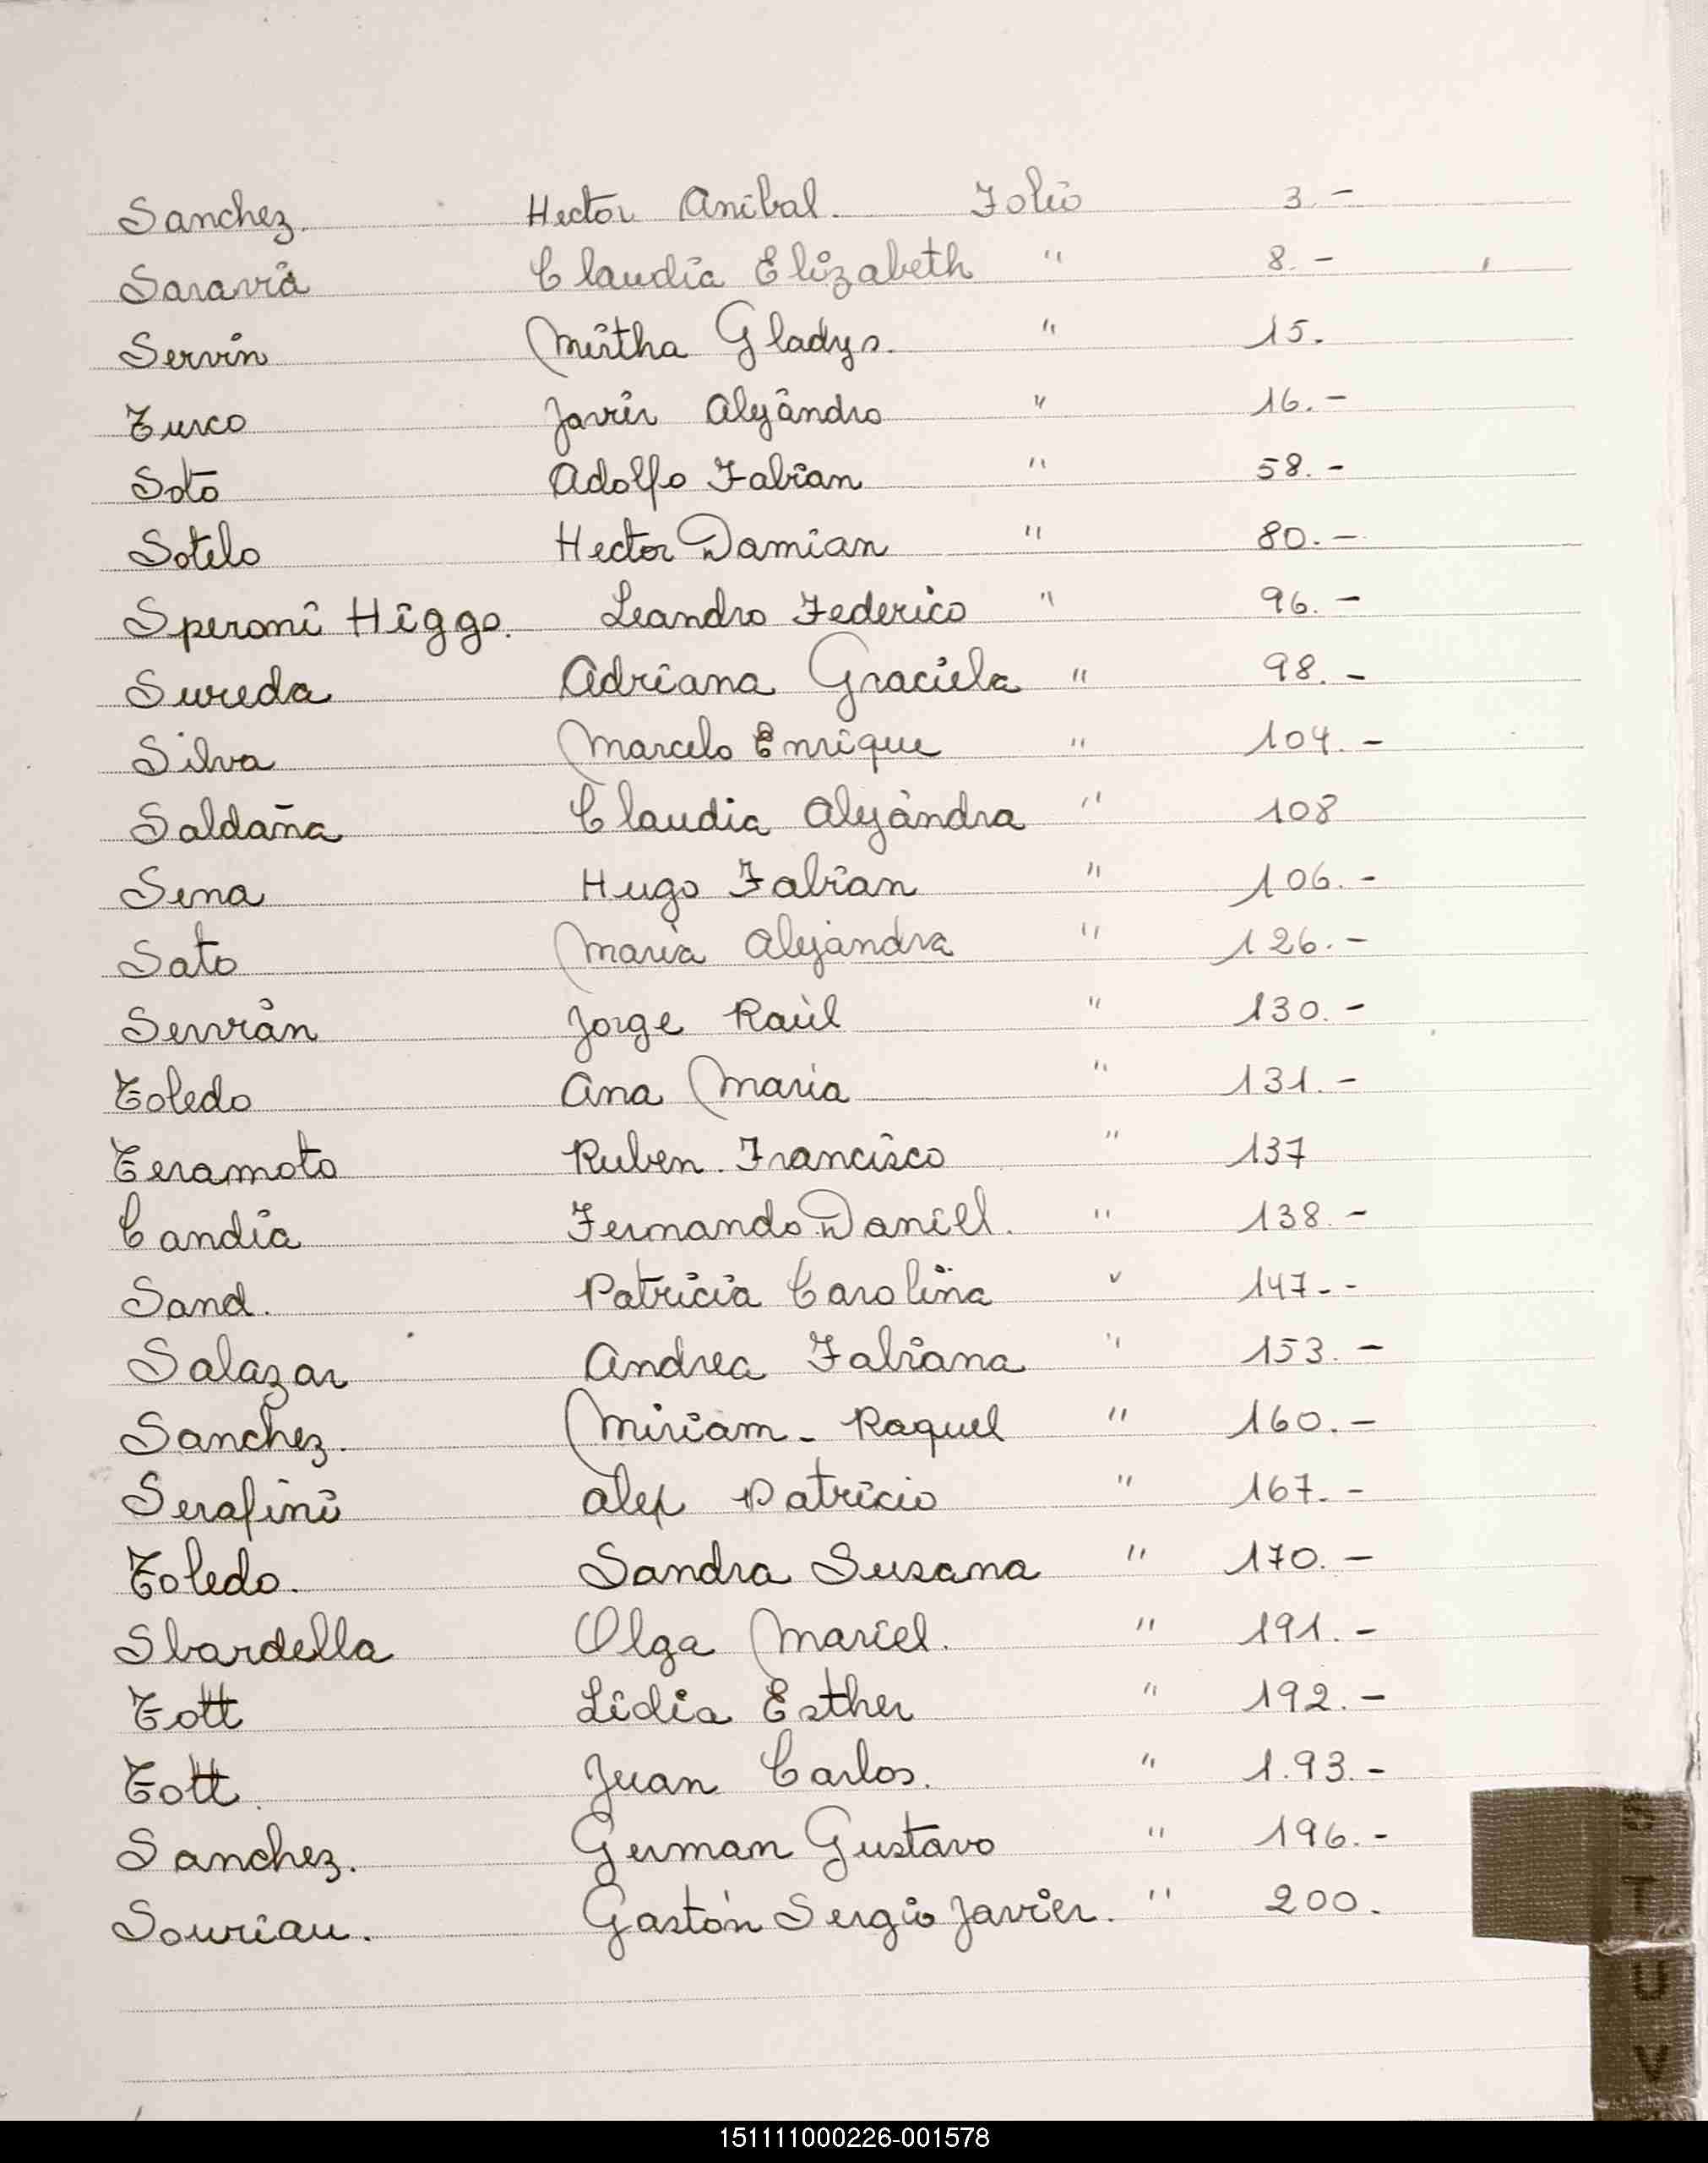 Sanchez. Hector Anibal. Folio 3.-
Saravia Claudia Elizabeth " 8.-
Servin Mirtha Gladys. " 15.
Turco Javier Alejandro " 16.-
Soto Adolfo Fabian " 58.-
Sotelo Hector Damian " 80.-
Speroni Higgs. Leandro Federico " 96.-
Sureda Adriana Graciela " 98.-
Silva Marcelo Enrique " 104.-
Saldaña Claudia Alejandra " 108
Sena Hugo Fabian " 106.-
Sato Maria Alejandra " 126.-
Servian Jorge Raúl " 130.-
Toledo Ana Maria " 131.-
Teramoto Ruben. Francisco " 137
Candia Fernando Daniel. " 138.-
Sand. Patricia Carolina " 147.-
Salazar Andrea Fabiana " 153.-
Sanchez. Miriam - Raquel " 160.-
Serafini Alex Patricio " 167.-
Toledo. Sandra Susana " 170.-
Sbardella Olga Mariel. " 191.-
Tott Lidia Esther " 192.-
Tott. Juan Carlos. " 1.93.-
Sanchez. German Gustavo " 196.-
Souriau. Gastón Sergio Javier. " 200.
S
T
U
V
151111000226-001578